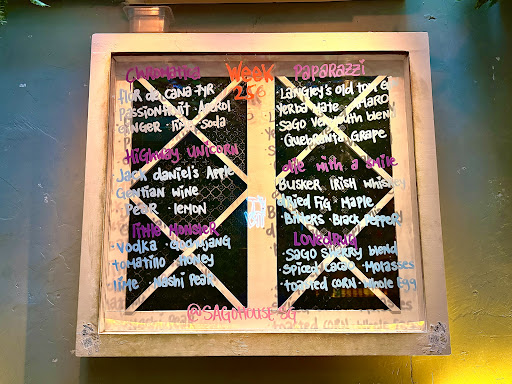 Week
256
Flor de Cana 7YR
Passionfruit · Aperol
Ginger · Soda
Highway Unicorn
Jack Daniel's Apple
Gentian Wine
· Pear · Lemon
Little Monster
· Vodka · Gochujang
Tomatillo · Honey
Lime · Nashi Pear
Paparazzi
· Langley's Old Tom Gin
Yerba Mate · Amaro
Sago Vermouth Blend
· Quebranta Grape
Busker Irish Whiskey
Dried Fig · Maple
· Bitters · Black Pepper
Lovedrug
· Sago Sherry Blend
· Spiced Cacao · Molasses
· Toasted Corn · Whole Egg
@SAGOHOUSE.SG